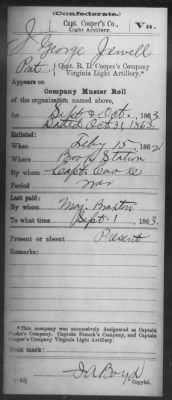 (Confederate.)
Capt. Cooper's Co., Va.
Light Artillery.
J. George Jewell
Pvt., Capt. R. L. Cooper's Company
Virginia Light Artillery.*
Appears on
Company Muster Roll
of the organization named above,
for Sept & Oct., 1863.
Dated Oct 31, 1863.
Enlisted:
When Feby 15, 1862
Where Station
By whom Capt. Cooke
Period War
Last paid:
By whom Maj. Braxton
To what time Sept. 1, 1863.
Present or absent Present
Remarks:
*This company was successively designated as Captain
Cooke's Company, Captain French's Company, and Captain
Cooper's Company Virginia Light Artillery.
Book mark:
J A Boyd
(642) Copyist.